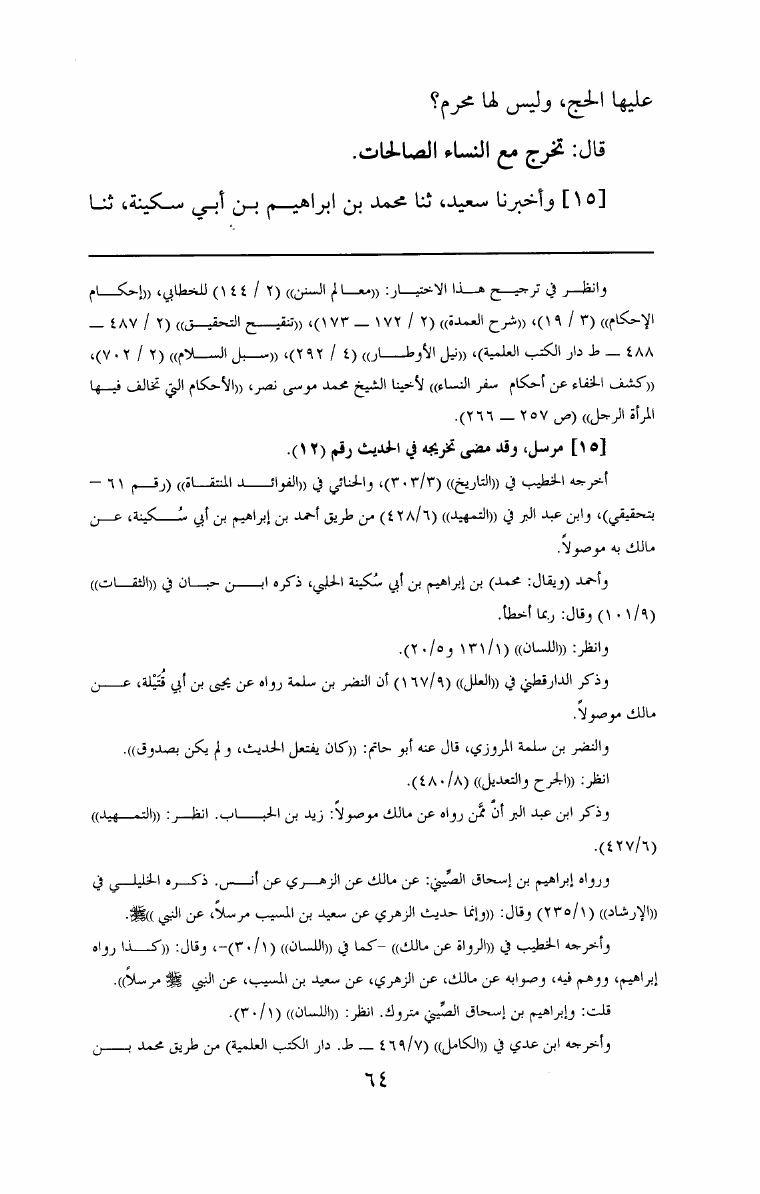 عليها الحج، وليس لها محرم؟
قال: تخرج مع النساء الصالحات.
[١٥] وأخبرنا سعيد، ثنا محمد بن ابراهيم بن أبي سكينة، ثنا
وانظر في ترجيح هذا الاختيار: ((معالم السنن)) (٢ / ١٤٤) للخطابي، ((إحكام
الإحكام)) (٣ / ١٩)، ((شرح العمدة)) (٢ / ١٧٢ — ١٧٣)، ((تنقيح التحقيق)) (٢ / ٤٨٧ —
٤٨٨ — ط دار الكتب العلمية)، ((نيل الأوطار)) (٤ / ٢٩٢)، ((سبل السلام)) (٢ / ٧٠٢)،
((كشف الخفاء عن أحكام سفر النساء)) لأخينا الشيخ محمد موسى نصر، ((الأحكام التي تخالف فيها
المرأة الرجل)) (ص ٢٥٧ — ٢٦٦).
[١٥] مرسل، وقد مضى تخريجه في الحديث رقم (١٢).
أخرجه الخطيب في ((التاريخ)) (٣٠٣/٣)، والحنائي في ((الفوائد المنتقاة)) (رقم ٦١ —
بتحقيقي)، وابن عبد البر في ((التمهيد)) (٤٢٨/٦) من طريق أحمد بن إبراهيم بن أبي سُكينة، عن
مالك به موصولاً.
وأحمد (ويقال: محمد) بن إبراهيم بن أبي سُكينة الحلبي، ذكره ابن حبان في ((الثقات))
(١٠١/٩) وقال: ربما أخطأ.
وانظر: ((اللسان)) (١٣١/١ و٢٠/٥).
وذكر الدارقطني في ((العلل)) (١٦٧/٩) أن النضر بن سلمة رواه عن يحيى بن أبي قُتَيْلة، عن
مالك موصولاً.
والنضر بن سلمة المروزي، قال عنه أبو حاتم: ((كان يفتعل الحديث، و لم يكن بصدوق)).
انظر: ((الجرح والتعديل)) (٤٨٠/٨).
وذكر ابن عبد البر أنّ ممَّن رواه عن مالك موصولاً: زيد بن الحباب. انظر: ((التمهيد))
(٤٢٧/٦).
ورواه إبراهيم بن إسحاق الصِّيني: عن مالك عن الزهري عن أنس. ذكره الخليلي في
((الإرشاد)) (٢٣٥/١) وقال: ((وإنما حديث الزهري عن سعيد بن المسيب مرسلاً، عن النبي ))ﷺ.
وأخرجه الخطيب في ((الرواة عن مالك)) -كما في ((اللسان)) (٣٠/١)-، وقال: ((كذا رواه
إبراهيم، ووهم فيه، وصوابه عن مالك، عن الزهري، عن سعيد بن المسيب، عن النبي ﷺ مرسلاً)).
قلت: وإبراهيم بن إسحاق الصِّيني متروك. انظر: ((اللسان)) (٣٠/١).
وأخرجه ابن عدي في ((الكامل)) (٤٦٩/٧ — ط. دار الكتب العلمية) من طريق محمد بن
٦٤